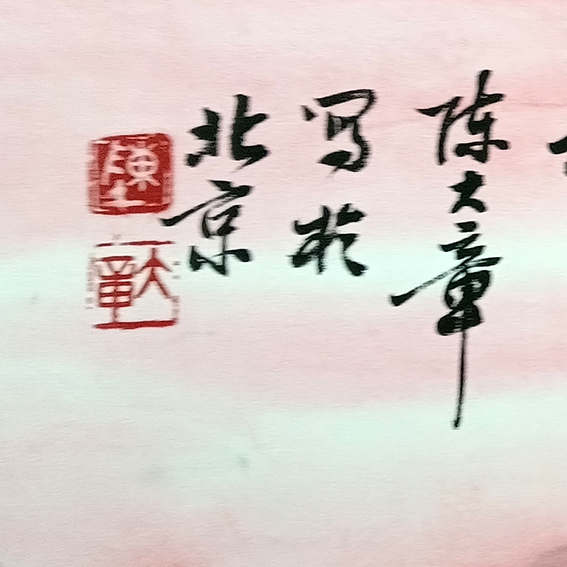 陈大章
写于
北京
陳
大章